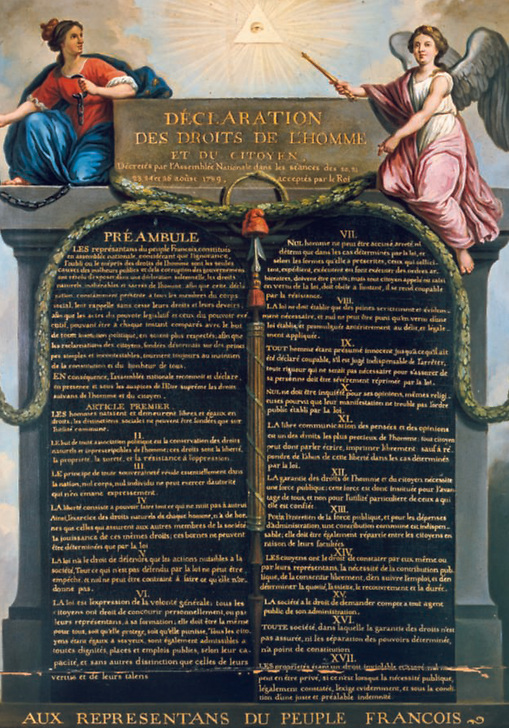 DÉCLARATION
DES DROITS DE L'HOMME
ET DU CITOYEN,
Décrétés par l'Assemblée Nationale dans les séances des 20, 21
23, 24 et 26 août 1789,
acceptés par le Roi
PRÉAMBULE
LES représentans du peuple François, constitués
en assemblée nationale, considérant que l'ignorance,
l'oubli ou le mépris des droits de l'homme sont les seules
causes des malheurs publics et de la corruption des gouvernemens
ont résolu d'exposer dans une déclaration solemnelle, les droits
naturels, inaliénables et sacrés de l'homme; afin que cette décla
ration, constamment présente a tous les membres du corps
social, leur rappelle sans cesse leurs droits et leurs devoirs;
afin que les actes du pouvoir législatif et ceux du pouvoir exé
cutif, pouvant être a chaque instant comparés avec le but
de toute institution politique, en soient plus respectés; afin que
les réclamations des citoyens, fondées désormais sur des principes
simples et incontestables, tournent toujours au maintien
de la constitution et du bonheur de tous.
EN conséquence, l'assemblée nationale reconnoit et déclare,
en presence et sous les auspices de l'Etre suprême les droits
suivans de l'homme et du citoyen.
ARTICLE PREMIER.
LES hommes naissent et demeurent libres et égaux en
droits, les distinctions sociales ne peuvent être fondées que sur
l'utilité commune.
II.
LE but de toute association politique est la conservation des droits
naturels et imprescriptibles de l'homme; ces droits sont la liberté,
la propriété, la sureté, et la résistance à l'oppression.
III.
LE principe de toute souveraineté réside essentiellement dans
la nation, nul corps, nul individu ne peut exercer d'autorité
qui n'en émane expressement.
IV.
LA liberté consiste a pouvoir faire tout ce qui ne nuit pas à autrui
Ainsi, l'exercice des droits naturels de chaque homme, n'a de bor-
nes que celles qui assurent aux autres membres de la société
la jouissance de ces mêmes droits; ces bornes ne peuvent
être déterminées que par la loi
V.
LA loi n'a le droit de défendre que les actions nuisibles à la
société. Tout ce qui n'est pas défendu par la loi ne peut être
empêché, et nul ne peut être contraint à faire ce qu'elle n'or-
donne pas.
VI.
LA loi est l'expression de la volonté générale; tous les
citoyens ont droit de concourir personnellement, ou par
leurs représentans, à sa formation; elle doit être la même
pour tous, soit qu'elle protege, soit qu'elle punisse. Tous les cito-
yens étant égaux à ses yeux, sont également admissibles à
toutes dignités, places et emplois publics, selon leur ca-
pacité, et sans autres distinction que celles de leurs
vertus et de leurs talens
VII.
NUL homme ne peut être accusé, arreté ni
détenu que dans les cas déterminés par la loi, et
selon les formes qu'elle a prescrites, ceux qui sollici-
tent, expédient, exécutent ou font exécuter des ordres ar-
bitraires, doivent être punis; mais tout citoyen appelé ou saisi
en vertu de la loi, doit obéir à l'instant, il se rend coupable
par la résistance.
VIII.
LA loi ne doit établir que des peines strictement et évidem-
ment nécessaire, et nul ne peut être puni qu'en vertu d'une
loi établie, et promulguée antérieurement au délit, et légale-
ment appliquée.
IX.
TOUT homme étant présumé innocent jusqu'a ce qu'il ait
été déclaré coupable, s'il est jugé indispensable de l'arrêter,
toute rigueur qui ne serait pas nécessaire pour s'assurer de
sa personne doit être sévèrement réprimée par la loi.
X.
NUL ne doit être inquiété pour ses opinions, mêmes religi-
euses pourvu que leur manifestation ne trouble pas l'ordre
public établi par la loi.
XI.
LA libre communication des pensées et des opinions
est un des droits les plus precieux de l'homme; tout citoyen
peut donc parler, écrire, imprimer librement: sauf à ré-
pondre de l'abus de cette liberté dans les cas déterminés
par la loi.
XII.
LA garantie des droits de l'homme et du citoyen nécessite
une force publique; cette force est donc instituée pour l'avan-
tage de tous, et non pour l'utilité particuliere de ceux a qui
elle est confiée.
XIII.
Pour l'entretien de la force publique, et pour les dépenses
d'administration, une contribution commune est indispen-
sable; elle doit être également répartie entre les citoyens en
raison de leurs facultés.
XIV.
LES citoyens ont le droit de constater par eux même ou
par leurs représentans, la nécessité de la contribution pub-
lique, de la consentir librement, d'en suivre l'emploi, et d'en
déterminer la quotité, l'assiette, le recouvrement et la durée.
XV.
LA société a le droit de demander compte a tout agent
public de son administration.
XVI.
TOUTE société, dans laquelle la garantie des droits n'est
pas assurée, ni la séparation des pouvoirs déterminée,
n'a point de constitution
XVII.
LES propriétés étant un droit inviolable et sacré, nul ne
peut en être privé, si ce n'est lorsque la nécessité publique,
légalement constatée, l'exige evidemment, et sous la condi-
tion d'une juste et préalable indemnité.
AUX REPRESENTANS DU PEUPLE FRANCOIS